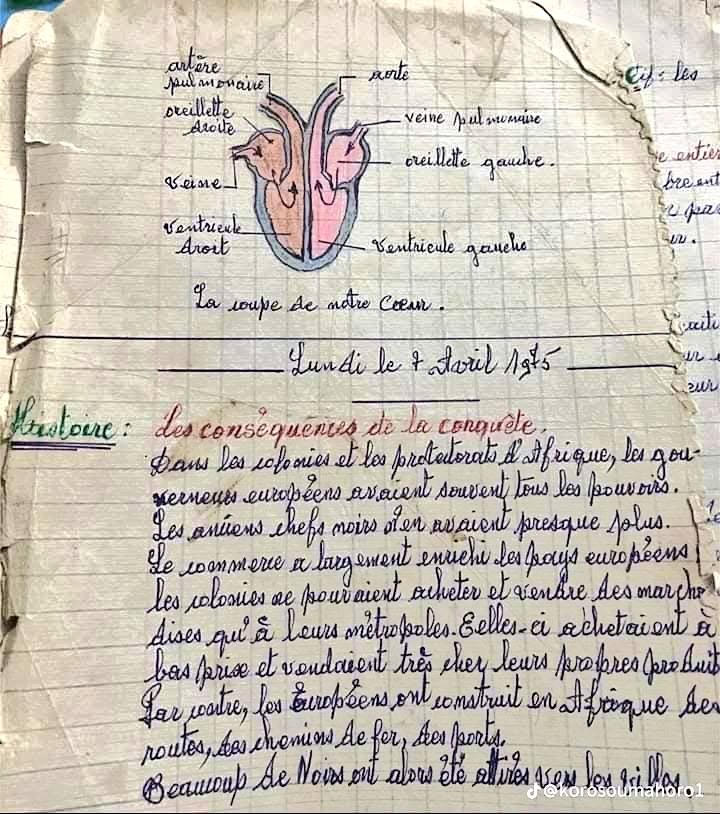 artère
pulmonaire
aorte
oreillette
droite
veine pulmonaire
oreillette gauche.
veine
ventricule
droit
ventricule gauche
La coupe de notre Cœur.
les
entier
Lundi le 7 Avril 1975
Histoire: Les conséquences de la conquête.
Dans les colonies et les protectorats d'Afrique, les gou-
verneurs européens avaient souvent tous les pouvoirs.
Les anciens chefs noirs n'en avaient presque plus.
Le commerce a largement enrichi les pays européens
les colonies ne pouvaient acheter et vendre des marchan
dises qu'à leurs métropoles. Celles-ci achetaient à
bas prix et vendaient très cher leurs propres produits
Par contre, les Européens ont construit en Afrique des
routes, des chemins de fer, des ports.
Beaucoup de Noirs ont alors été attirés vers les villes
@korosoumahoro1